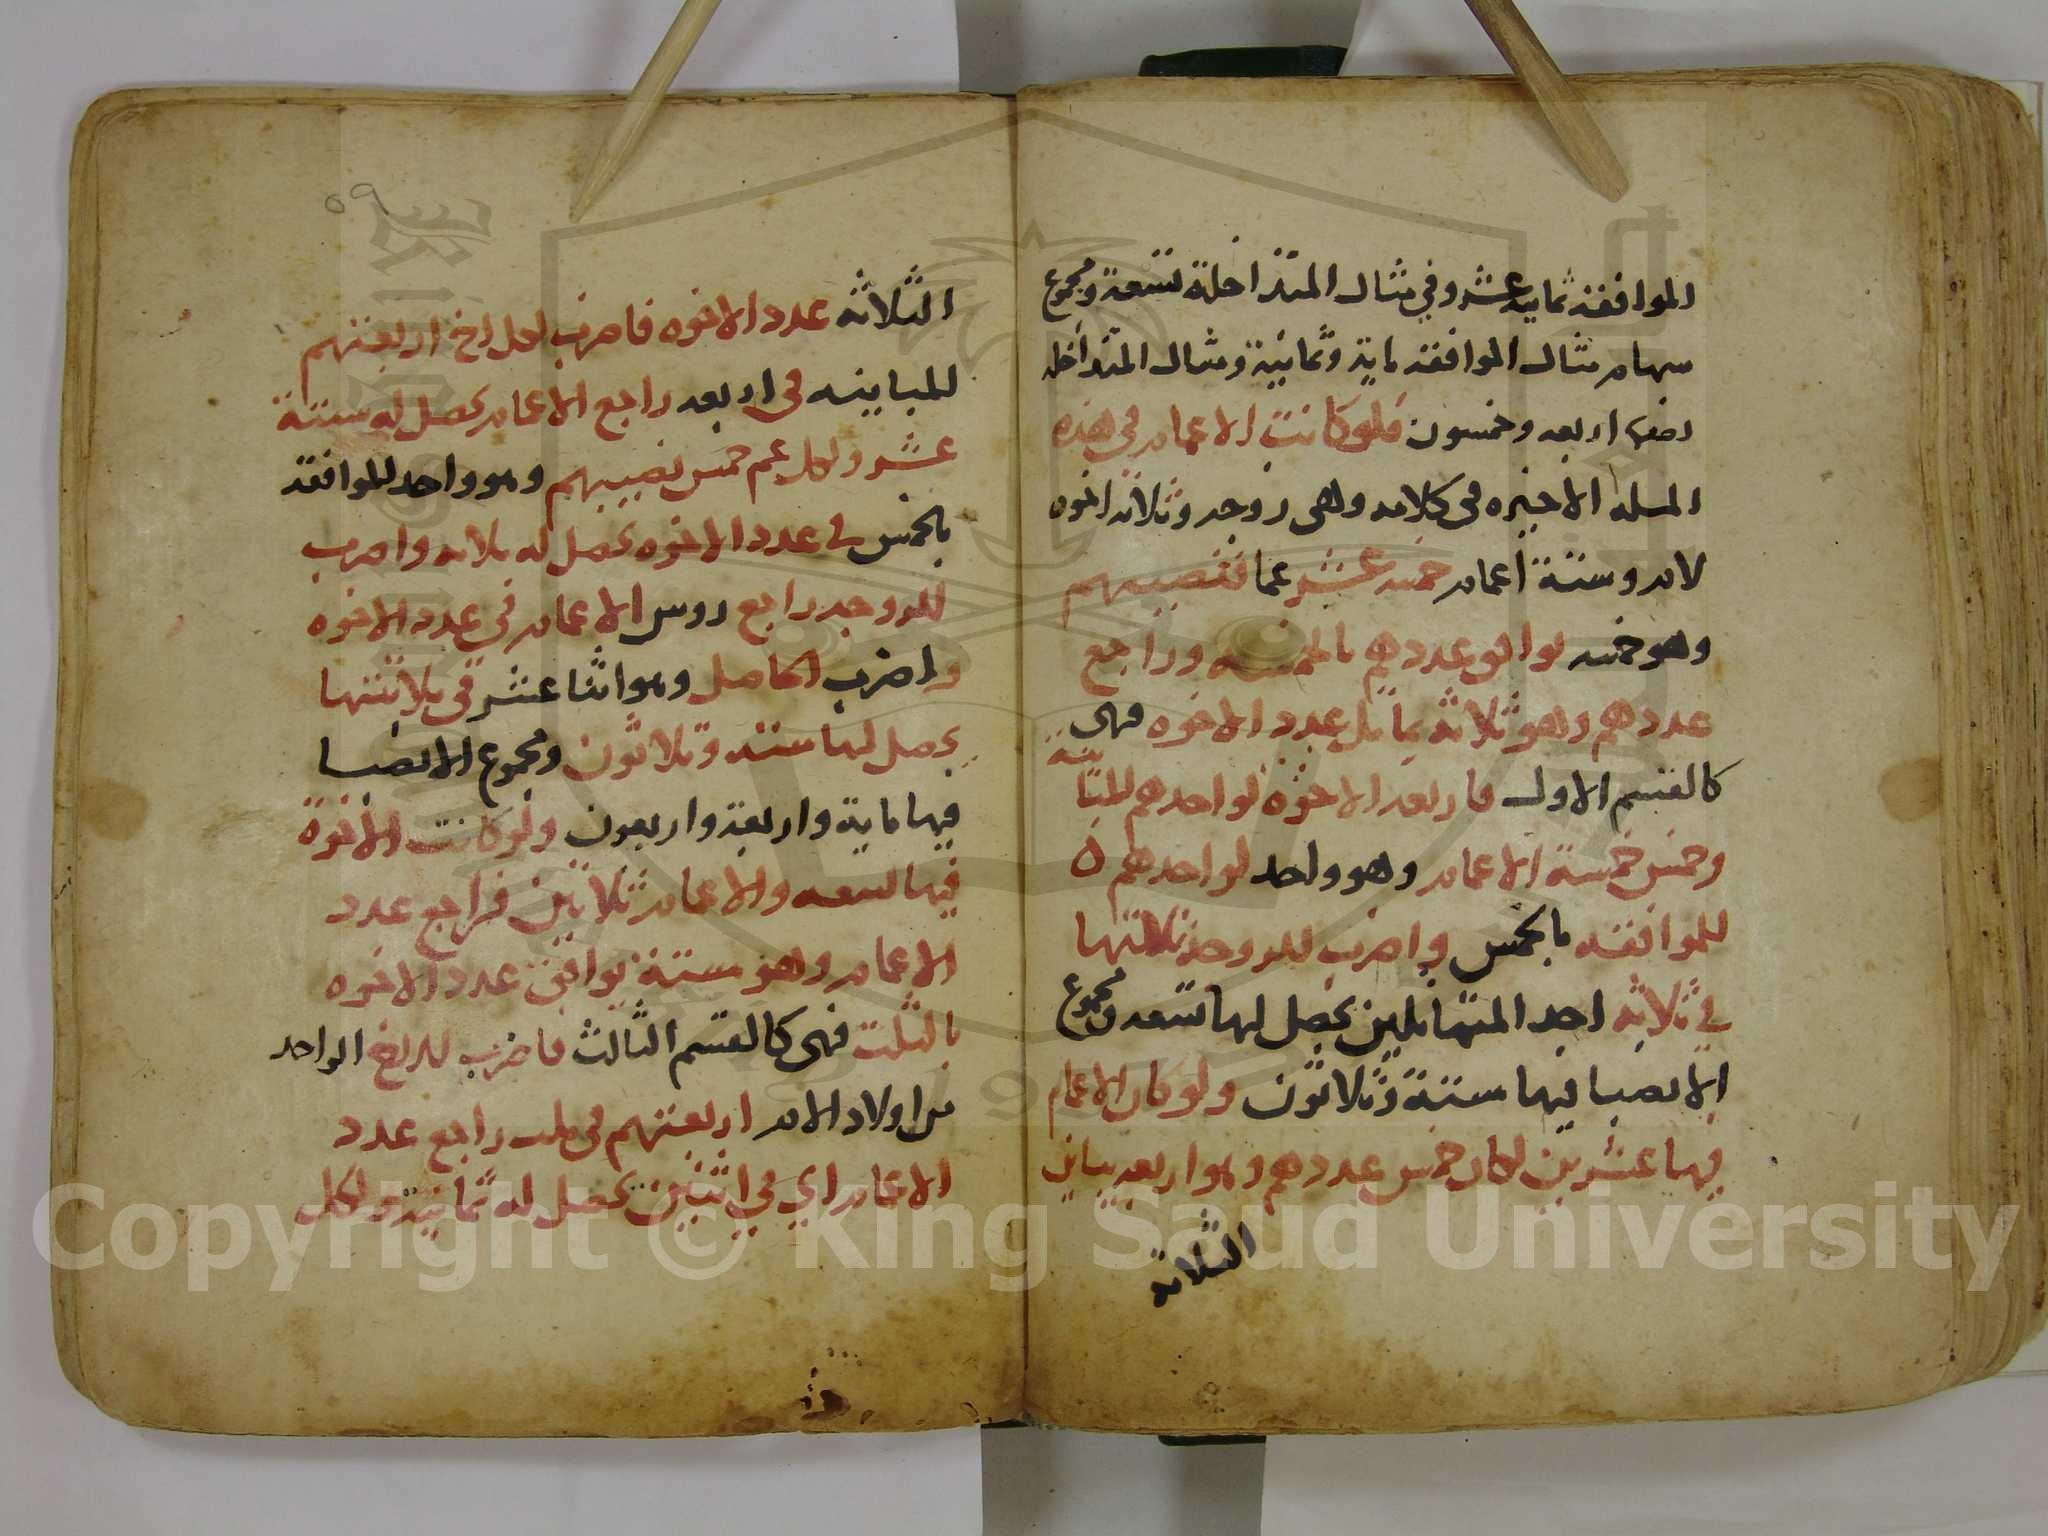 الموافقة ثمانية عشر وفي مثال المتداخلة تسعة ومجموع
سهام مثال الموافقة ماية وثمانية ومثال المتداخله
نصفها اربعه وخمسون فلو كانت الاعمام في هذه
المسله الاخيره في كلامه وهي زوجه وثلاثه اخوه
لام وستة اعمام خمسه عشر عما فنصيبهم
وهو خمسه يوافق عددهم بالخمسه وراجع
عددهم وهو ثلاثه يماثل عدد الاخوه فهي
كالقسم الاول فاربعه الاخوه لواحدهم للمبا
ينة
وخمس خمسة الاعمام وهو واحد لواحدهم ٥
للموافقه بالخمس واضرب للزوجة ثلاثتها
في ثلاثه احد المتماثلين يحصل لها تسعه ومجموع
الانصبا فيها ستة وثلاثون ولو كان الاعمام
فيها عشرين لكان خمس عددهم وهو اربعه يباين
الثلاثه
٥٩
الثلاثه عدد الاخوه فاضرب لكل اخ اربعتهم
للمباينه في اربعه راجع الاعمام يحصل له ستة
عشر ولكل عم خمس نصيبهم وهو واحد للموافقه
بالخمس في عدد الاخوه يحصل له ثلاثه واضرب
للزوجه راجع روس الاعمام في عدد الاخوه
واضرب الحاصل وهو اثنا عشر في ثلاثتها
يحصل لها ستة وثلاثون ومجموع الانصبا
فيها ماية واربعة واربعون ولو كانت الاخوة
فيها تسعه والاعمام ثلاثين فراجع عدد
الاعمام وهو ستة يوافق عدد الاخوه
بالثلث فهي كالقسم الثالث فاضرب للاخ الواحد
من اولاد الام اربعتهم في ثلث راجع عدد
الاعمام اي في اثنين يحصل له ثمانية ولكل
Copyright © King Saud University